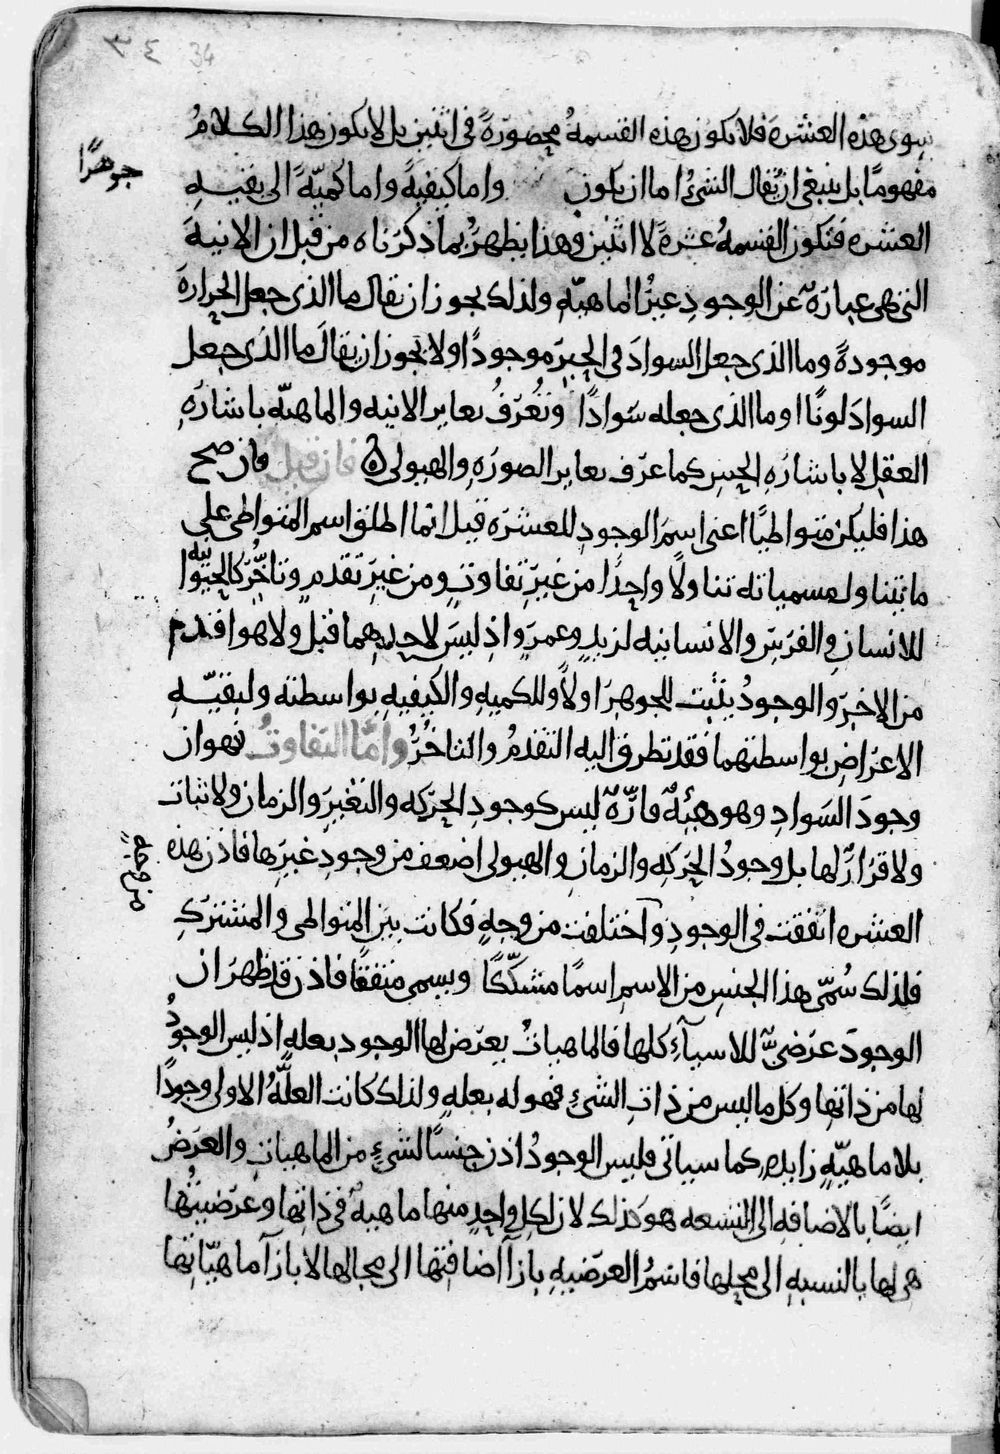 ٣٤ 34
سوى هذه العشرة فلا يكون هذه القسمةُ محصورةً في اثنين بل لا يكون هذا الكلامُ
مفهومًا بل ينبغي ان يُقال الشيءُ اما ان يكون واما كيفيةً واما كميّةً الى بقيه
جوهرًا
العشره فتكون القسمةُ عشرةً لا اثنين وهذا يظهرُ بما ذكرناه من قبل ان الانيةَ
التي هي عبارةٌ عن الوجودِ غيرُ الماهيّهِ ولذلك يجوز ان يقال ما الذي جعل الحرارةَ
موجودةً وما الذي جعل السوادَ في الحبرِ موجودًا ولا يجوز ان يقالَ ما الذي جعل
السوادَ لونًا او ما الذي جعله سَوادًا ونُعُرِّفُ تغاير الانيه والماهيّه باشارةِ
العقلِ لا باشارةِ الحسِ كما عرّف تغاير الصورَهِ والهيولى ۞ فان قيل فان صح
هذا فليكن متواطيًا اعني اسمَ الوجودِ للعشرَه قيل انما اطلق اسم المتواطي على
ما يتناول مسمياته تناولًا واحِدًا من غيرِ تفاوتٍ ومن غيرِ تقدمٍ وتاخُّرٍ كالحيوانيه
للانسانِ والفرَسِ والانسانيه لزيدٍ وعمرٍو اذ ليسَ لاحدِهما قبل ولا هو اقدم
من الاخرِ والوجودُ يثبت للجوهرِ اولًا وللكميهِ والكيفيهِ بواسطته ولبقيّهِ
الاعرَاضِ بواسطتهما فقد تطرق اليه التقدمُ والتاخرُ وامّا التفاوتُ فهو ان
وجودَ السَوادِ وهو هيئةٌ قارّةٌ ليس كوجودِ الحركه والتغيرِ والزمان ولا ثبات
ولا قرارَ لها بل وجودُ الحرَكهِ والزمانِ والهيولى اضعف من وجودِ غيرِها فاذن هذه
العشره اتفقت في الوجودِ واختلفت من وجهٍ فكانت بين المتواطي والمشتركِ
من وجهٍ
فلذلك سُمّي هذا الجنسِ من الاسمِ اسمًا مشكّكًا ويسمى متفقًا فاذن قد ظهر ان
الوجودَ عرَضيٌّ للاسيآءِ كلها فالماهياتُ يعرَض لها الوجود بعلهٍ اذ ليس الوجودُ
لها من ذاتها وكل ما ليس من ذات الشيءِ فهو له بعلهٍ ولذلك كانت العلّهُ الاولى وجودًا
بلا ماهيّهٍ زايدهٍ كما سياتي فليس الوجودُ اذن جنسًا لشيءٍ من الماهياتِ والعرَضُ
ايضًا بالاضافهِ الى التسعه هو كذلك لان لكلِ واحدٍ منها ماهيةً في ذاتها وعرَضيتُها
هي لها بالنسبهِ الى محلها فاسمُ العرَضيهِ بازآ اضافتها الى محالها لا بازآ ماهيّاتِها